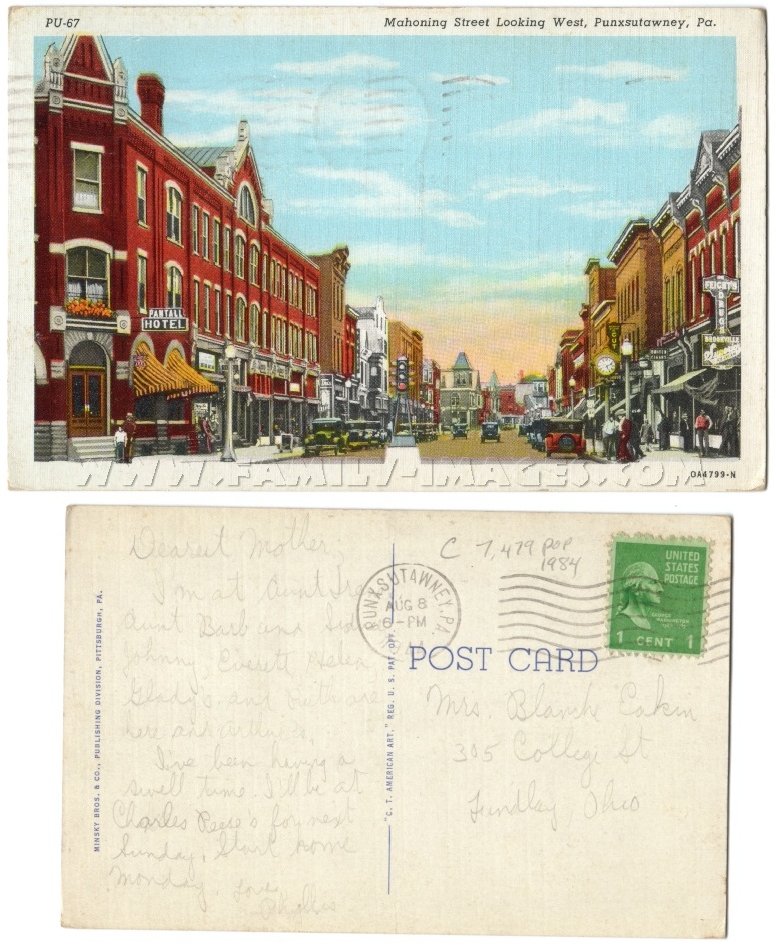 PU-67
Mahoning Street Looking West, Punxsutawney, Pa.
PANTALL
HOTEL
FEICHT'S
DRUGS
BROOKVILLE
WWW.FAMILY-IMAGES.COM
OA4799-N
Dearest Mother,
I'm at Aunt
Aunt Barb and
Johnny Everett Helen
Gladys and Ruth are
here and
I've been having a
swell time. I'll be at
Charles Reese's for next
Sunday, Start home
Monday.
Love,
Phyllis
C 7,479 POP
1984
PUNXSUTAWNEY, PA.
AUG 8
6-PM
UNITED
STATES
POSTAGE
GEORGE
WASHINGTON
1 CENT 1
POST CARD
Mrs. Blanche Eakin
305 College St
Findlay, Ohio
MINSKY BROS. & CO., PUBLISHING DIVISION, PITTSBURGH, PA.
"C. T. AMERICAN ART," REG. U. S. PAT. OFF.